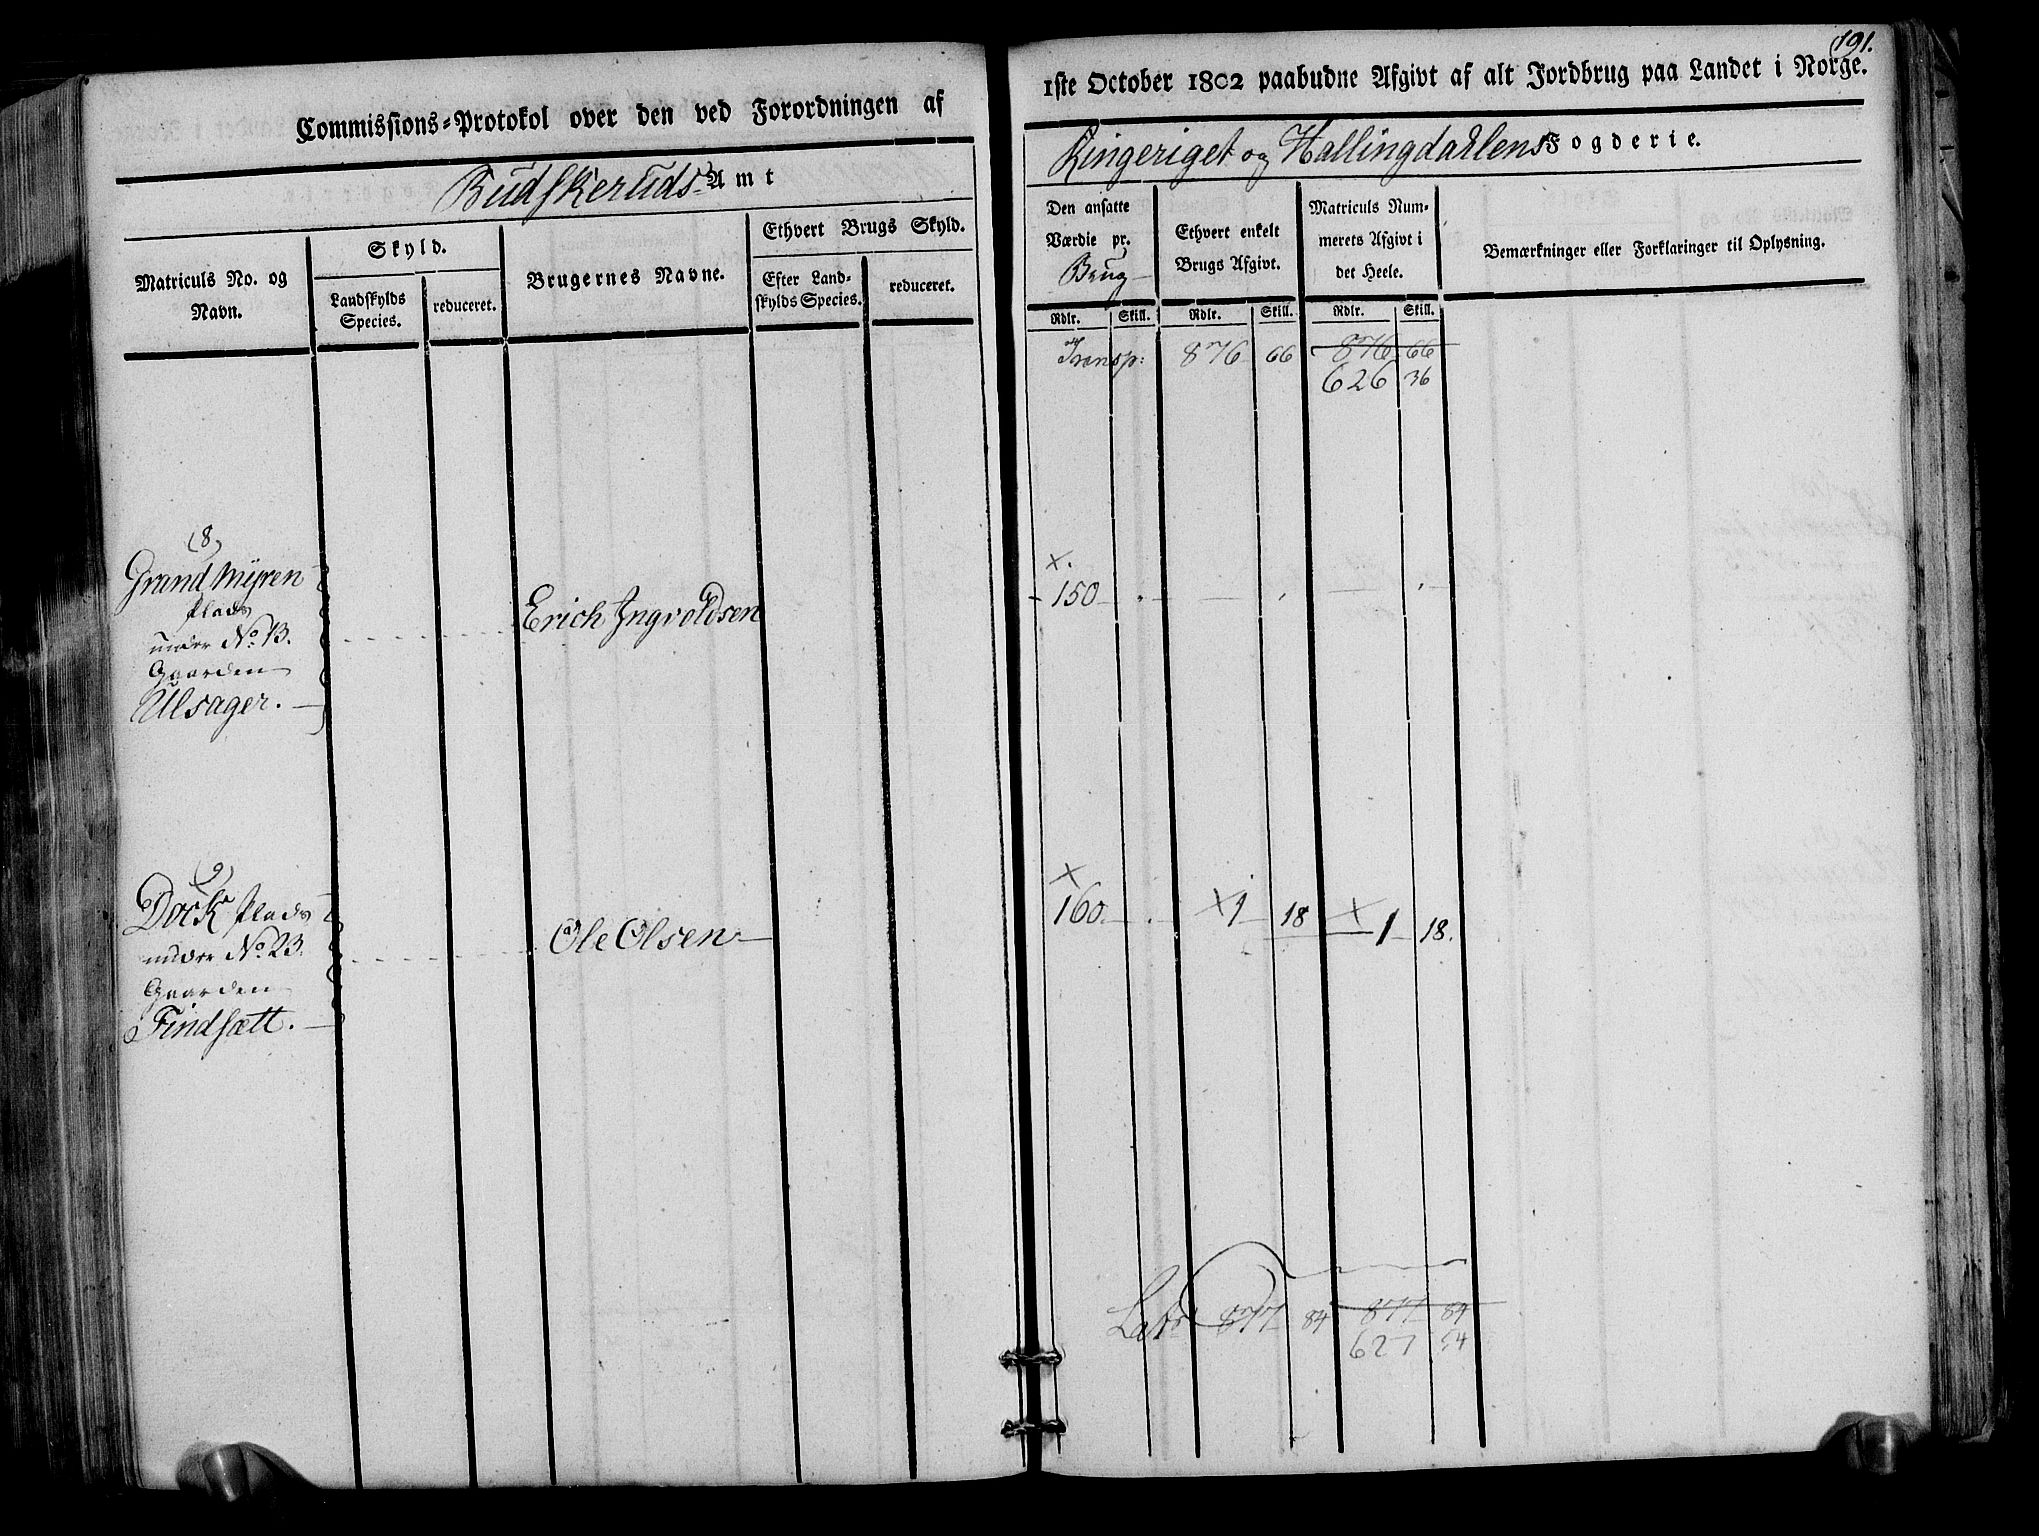 Commissions-Protokol over den ved Forordningen af
Budskeruds Amt
Matriculs No. og Navn.
Skyld.
Landskylds Species.
reduceret.
Brugernes Navne.
Ethvert Brugs Skyld.
Efter Landskylds Species.
reduceret.
(8)
Grand Myren
Plads
under No. 13.
Gaarden
Ulsager.
Erich Ingvoldsen
(9)
Dock Plads
under No. 23.
Gaarden
Findsætt.
Ole Olsen
191.
1ste October 1802 paabudne Afgivt af alt Jordbrug paa Landet i Norge.
Ringeriget og Hallingdahlens Fogderie.
Den ansatte
Værdie pr.
Brug
Ethvert enkelt
Brugs Afgivt.
Matriculs Num-
merets Afgivt i
det Heele.
Bemærkninger eller Forklaringer til Oplysning.
Rdlr. Skill. Rdlr. Skill. Rdlr. Skill.
Transp: 876 66 876 66
626 36
x.
150
x
160. x 1 18 x 1 18.
Lat 877 84 877 84
627 54